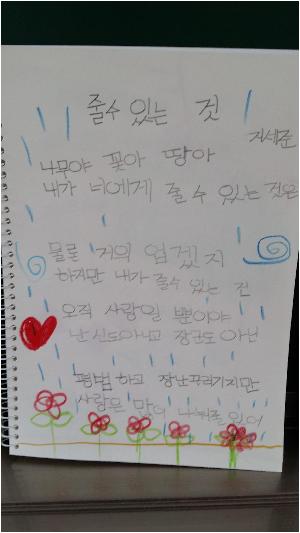 줄수 있는 것
지세준
나무야 꽃아 땅아
내가 너에게 줄 수 있는 것은
물론 거의 업겠지
하지만 내가 줄수 있는 건
오직 사랑일 뿐이야
난 신도아니고 장군도 아닌
평범하고 장난꾸러기지만
사랑은 많이 나눠줄 수 있어